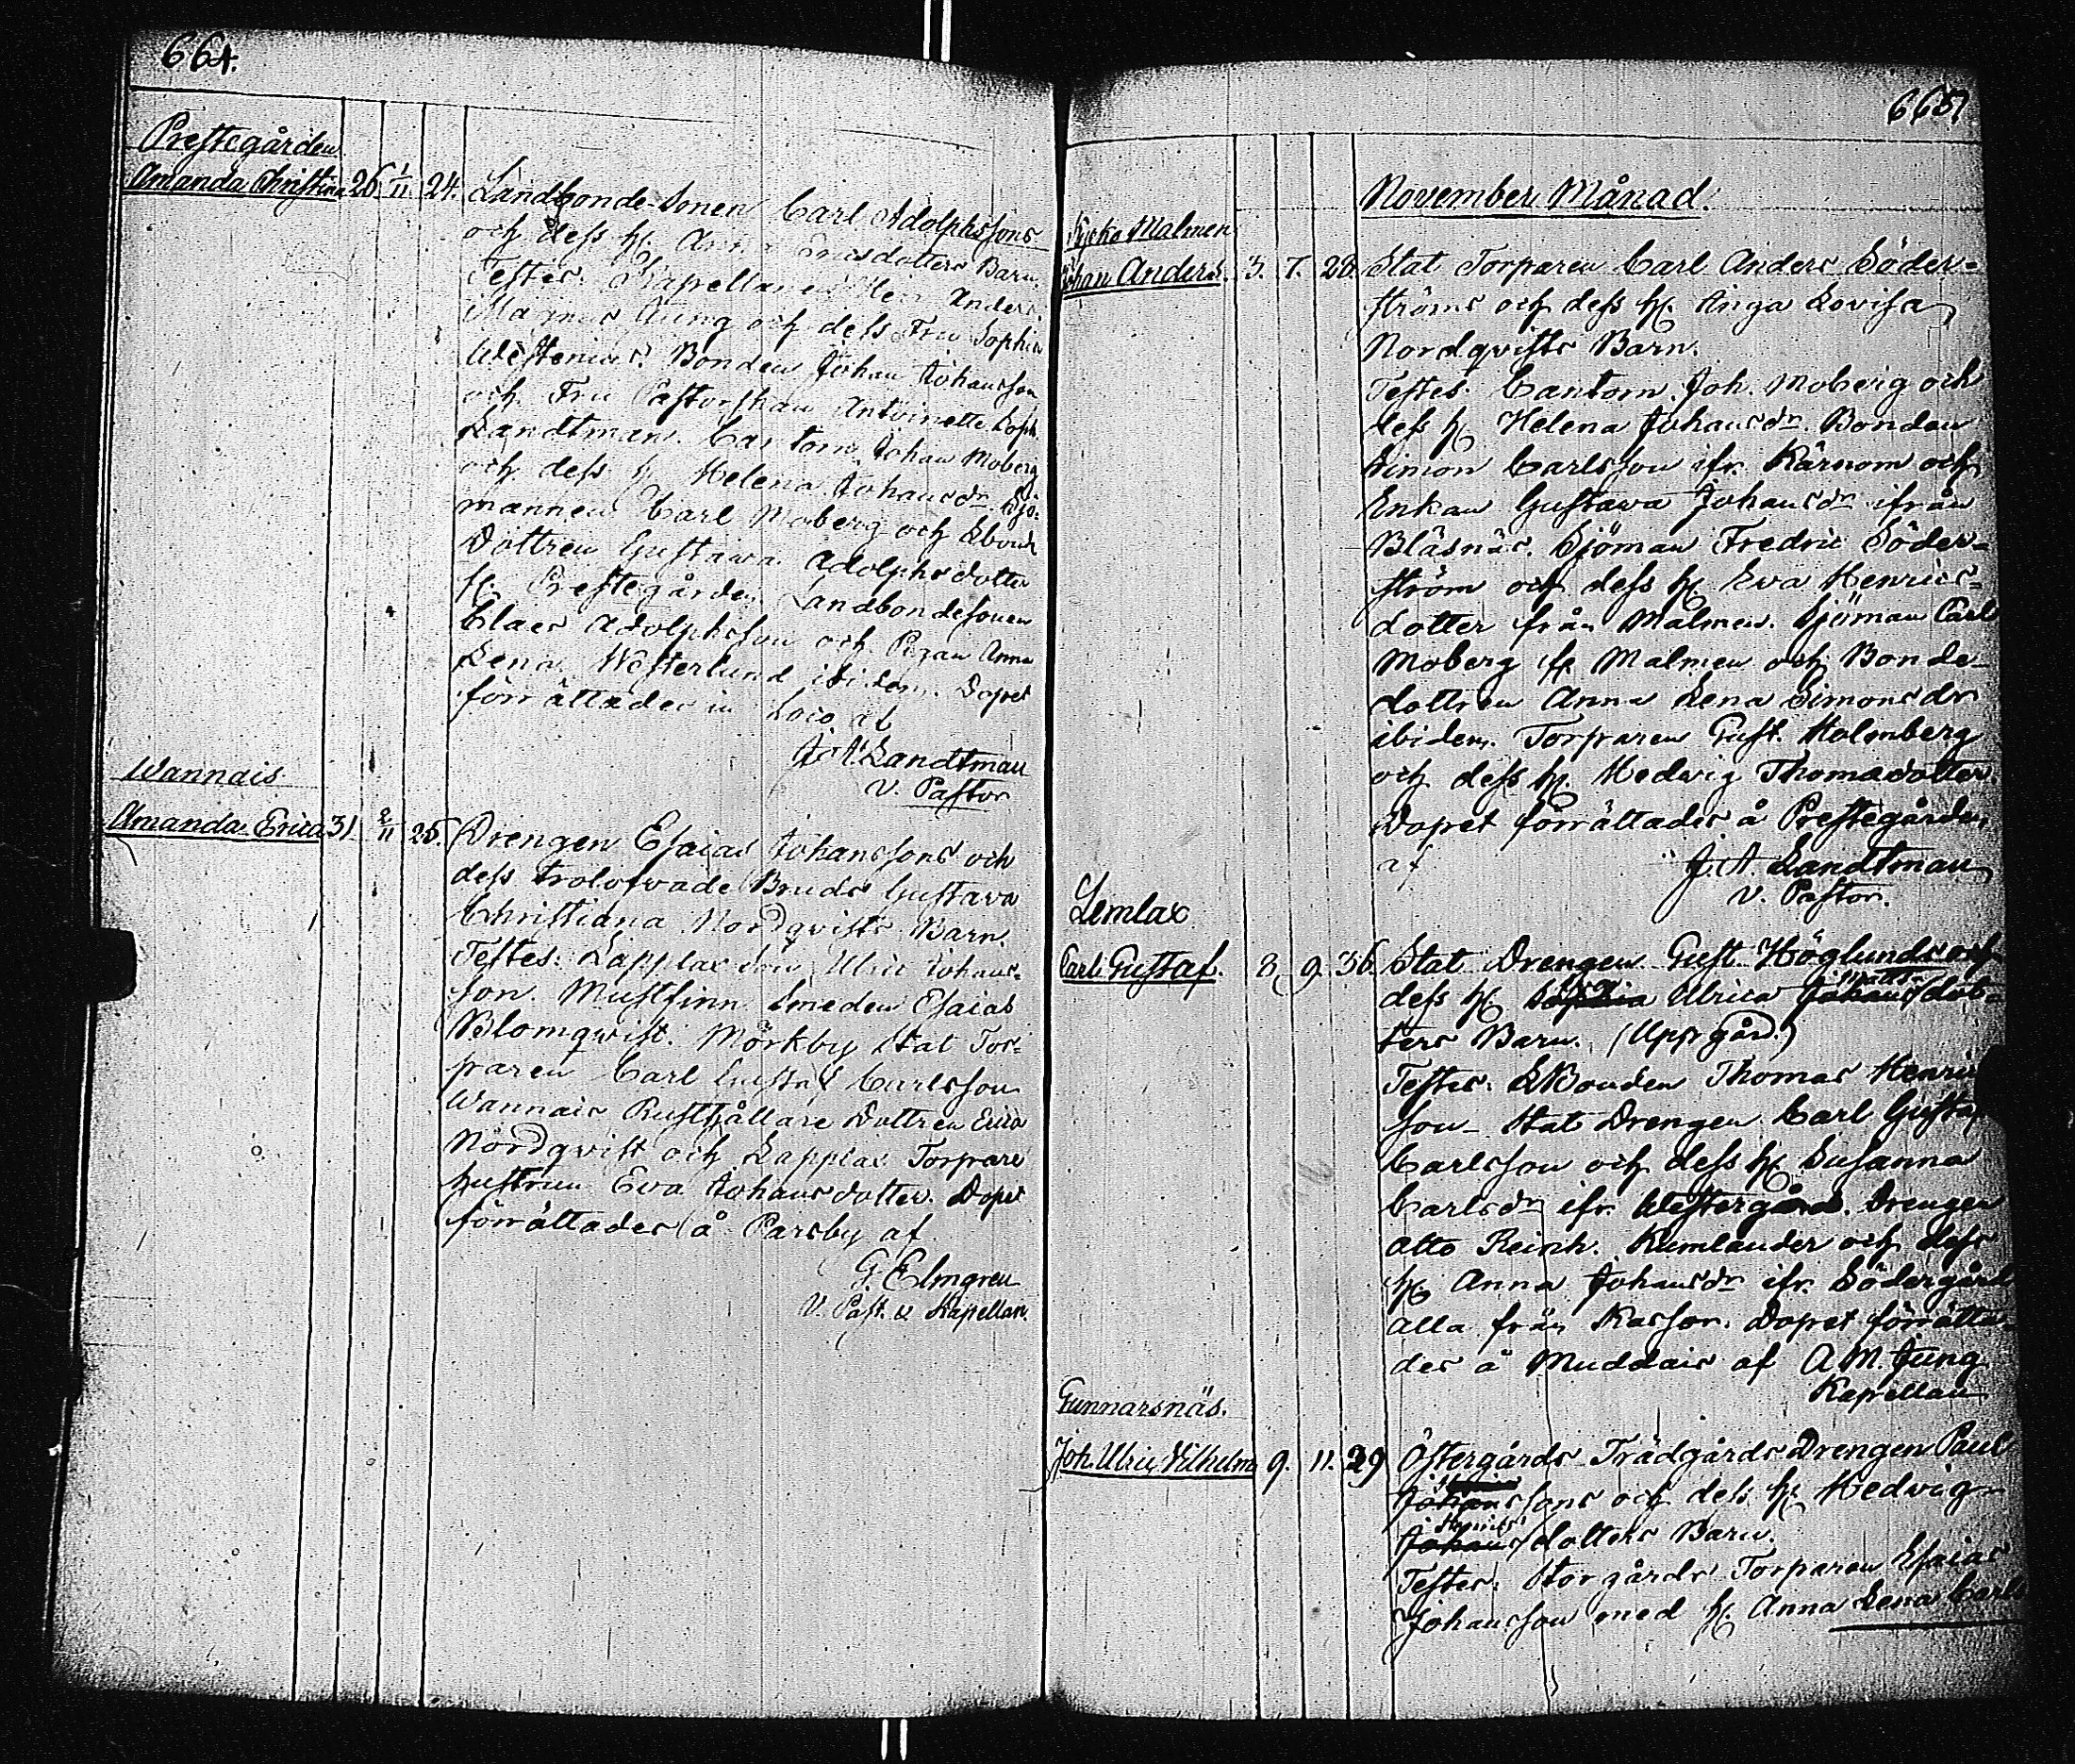 664.
Prestegården
Amanda Christina 26. 1/11 24. Landbonde-Sonen Carl Adolphssons
och dess h. Anna Ericsdotters Barn.
Testes. Kapellanen Herr Anders
Magnus Jung och dess Fru Sophia
Westenius. Bonden Johan Johansson
och Fru Pastorskan Antoinette Soph.
Landtman. Cantorn Johan Moberg
och dess h. Helena Johansdr. Sjö-
mannen Carl Moberg och
Dottren Gustawa Adolphsdotter
fr. Prestegården Landbondesonen
Claes Adolphsson och Pigan Anna
Lena Westerlund ibidem. Dopet
förrättades in Loco af
J. A. Landtman
V. Pastor
Wannais
Amanda Erica 31 2/11 25. Drengen Esaias Johanssons och
dess trolofvade Bruds Gustava
Christiana Nordqvists Barn.
Testes: Lapplax Ulric Johans-
son. Mustfinn Smeden Esaias
Blomqwist. Mörkby Stat Tor-
paren Carl Gustaf Carlsson
Wannais Rusthållare Dottren Erica
Nordqvist och Lapplax Torpare
hustrun Eva Johansdotter. Dopet
förrättades å Parsby af
G. Elmgren
V. Past. & Kapellan.
665
November Månad.
Malmen
Johan Anders. 3. 7. 28. Stat Torparen Carl Anders Söder-
ströms och dess h. Inga Lovisa
Nordqvists Barn.
Testes: Cantorn Joh. Moberg och
dess h. Helena Johansdr. Bonden
Simon Carlsson ifr. Kärnom och
Enkan Gustawa Johansdr ifrån
Bläsnäs. Sjöman Fredric Söder-
ström och dess h. Eva Henrics-
dotter från Malmen. Sjöman Carl
Moberg ifr Malmen och Bonde-
dottren Anna Lena Simonsdr
ibidem. Torparen Gust. Holmberg
och dess h. Hedwig Thomasdotter
Dopet förrättades å Prestegården
af J. A. Landtman
V. Pastor.
Lemlax
Carl Gustaf. 8 9. 36. Stat Drengen Gust. Höglunds och
dess h. Sophia Ulrica Johansdot-
ters Barn. (Uppgård.)
Testes: Bonden Thomas Henric
son Stat Drengen Carl Gustaf
Carlsson och dess h. Susanna
Carlsdr ifr. Westergård. Drengen
Otto Reinh. Kumlander och dess
h. Anna Johansdr ifr. Södergård
alla från Kassor. Dopet förrätta-
des å Muddais af A. M. Jung
Kapellan
Gunnarsnäs.
Joh. Ulric Vilhelm 9. 11. 29 Östergårds Trädgårds Drengen Paul
Johanssons och dess h. Hedvig
Henrics
Johansdotters Barn.
Testes: Storgårds Torparen Esaias
Johansson med h. Anna Lena Carls